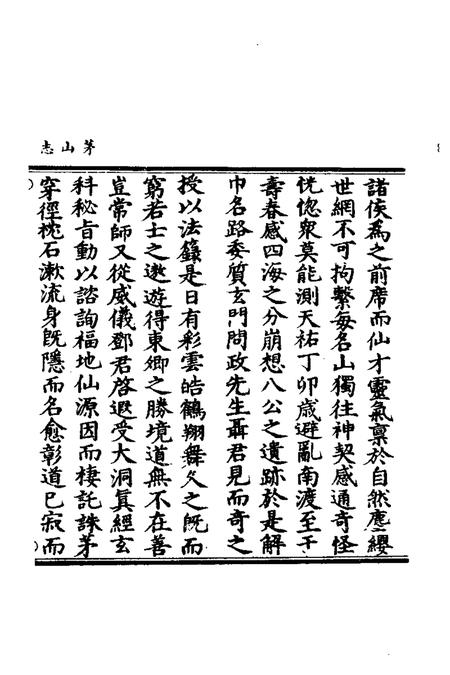 茅山志
諸侯為之前席而仙才靈氣稟於自然塵纓
世網不可拘繫每名山獨往神契感通奇怪
恍惚衆莫能測天祐丁卯歲避亂南渡至于
壽春感四海之分崩想八公之遺跡於是解
巾名路委質玄門問政先生聶君見而奇之
授以法籙是日有彩雲皓鶴翔舞久之既而
窮若士之遨遊得東鄉之勝境道無不在善
豈常師又從威儀鄧君啓遐受大洞真經玄
科秘旨動以諮詢福地仙源因而棲託誅茅
穿徑枕石漱流身既隱而名愈彰道已寂而